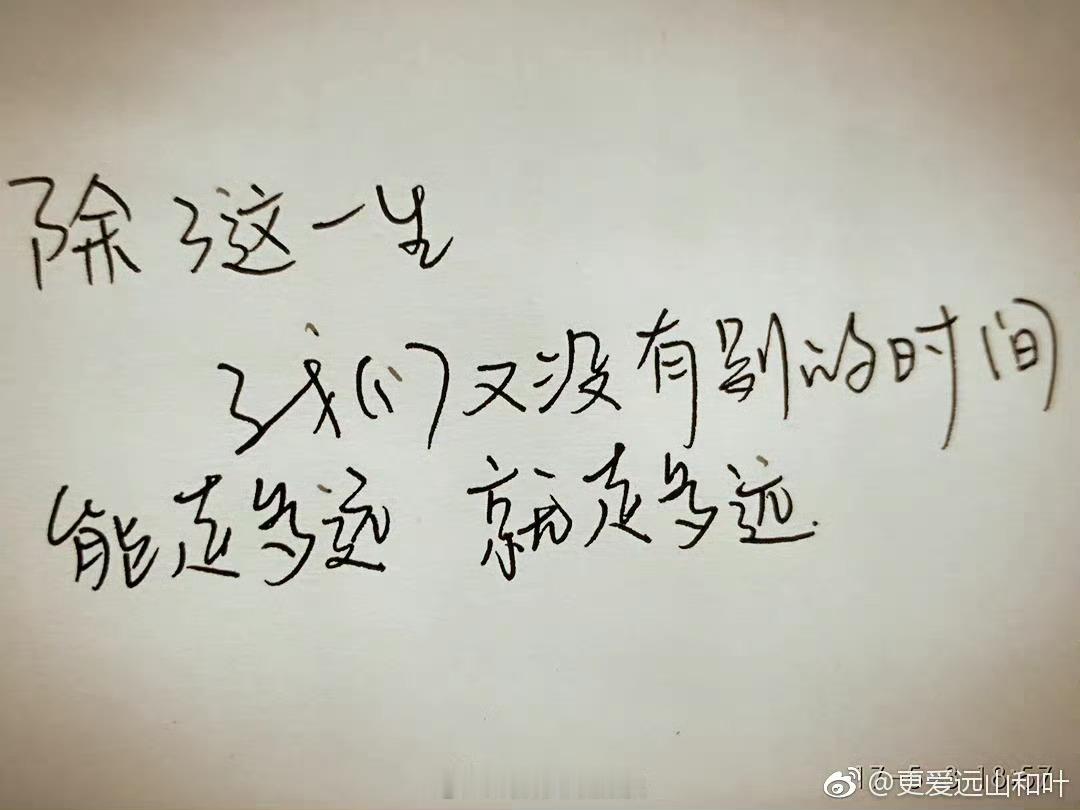 除了这一生
我们又没有别的时间
能走多远 就走多远.
@更爱远山和叶